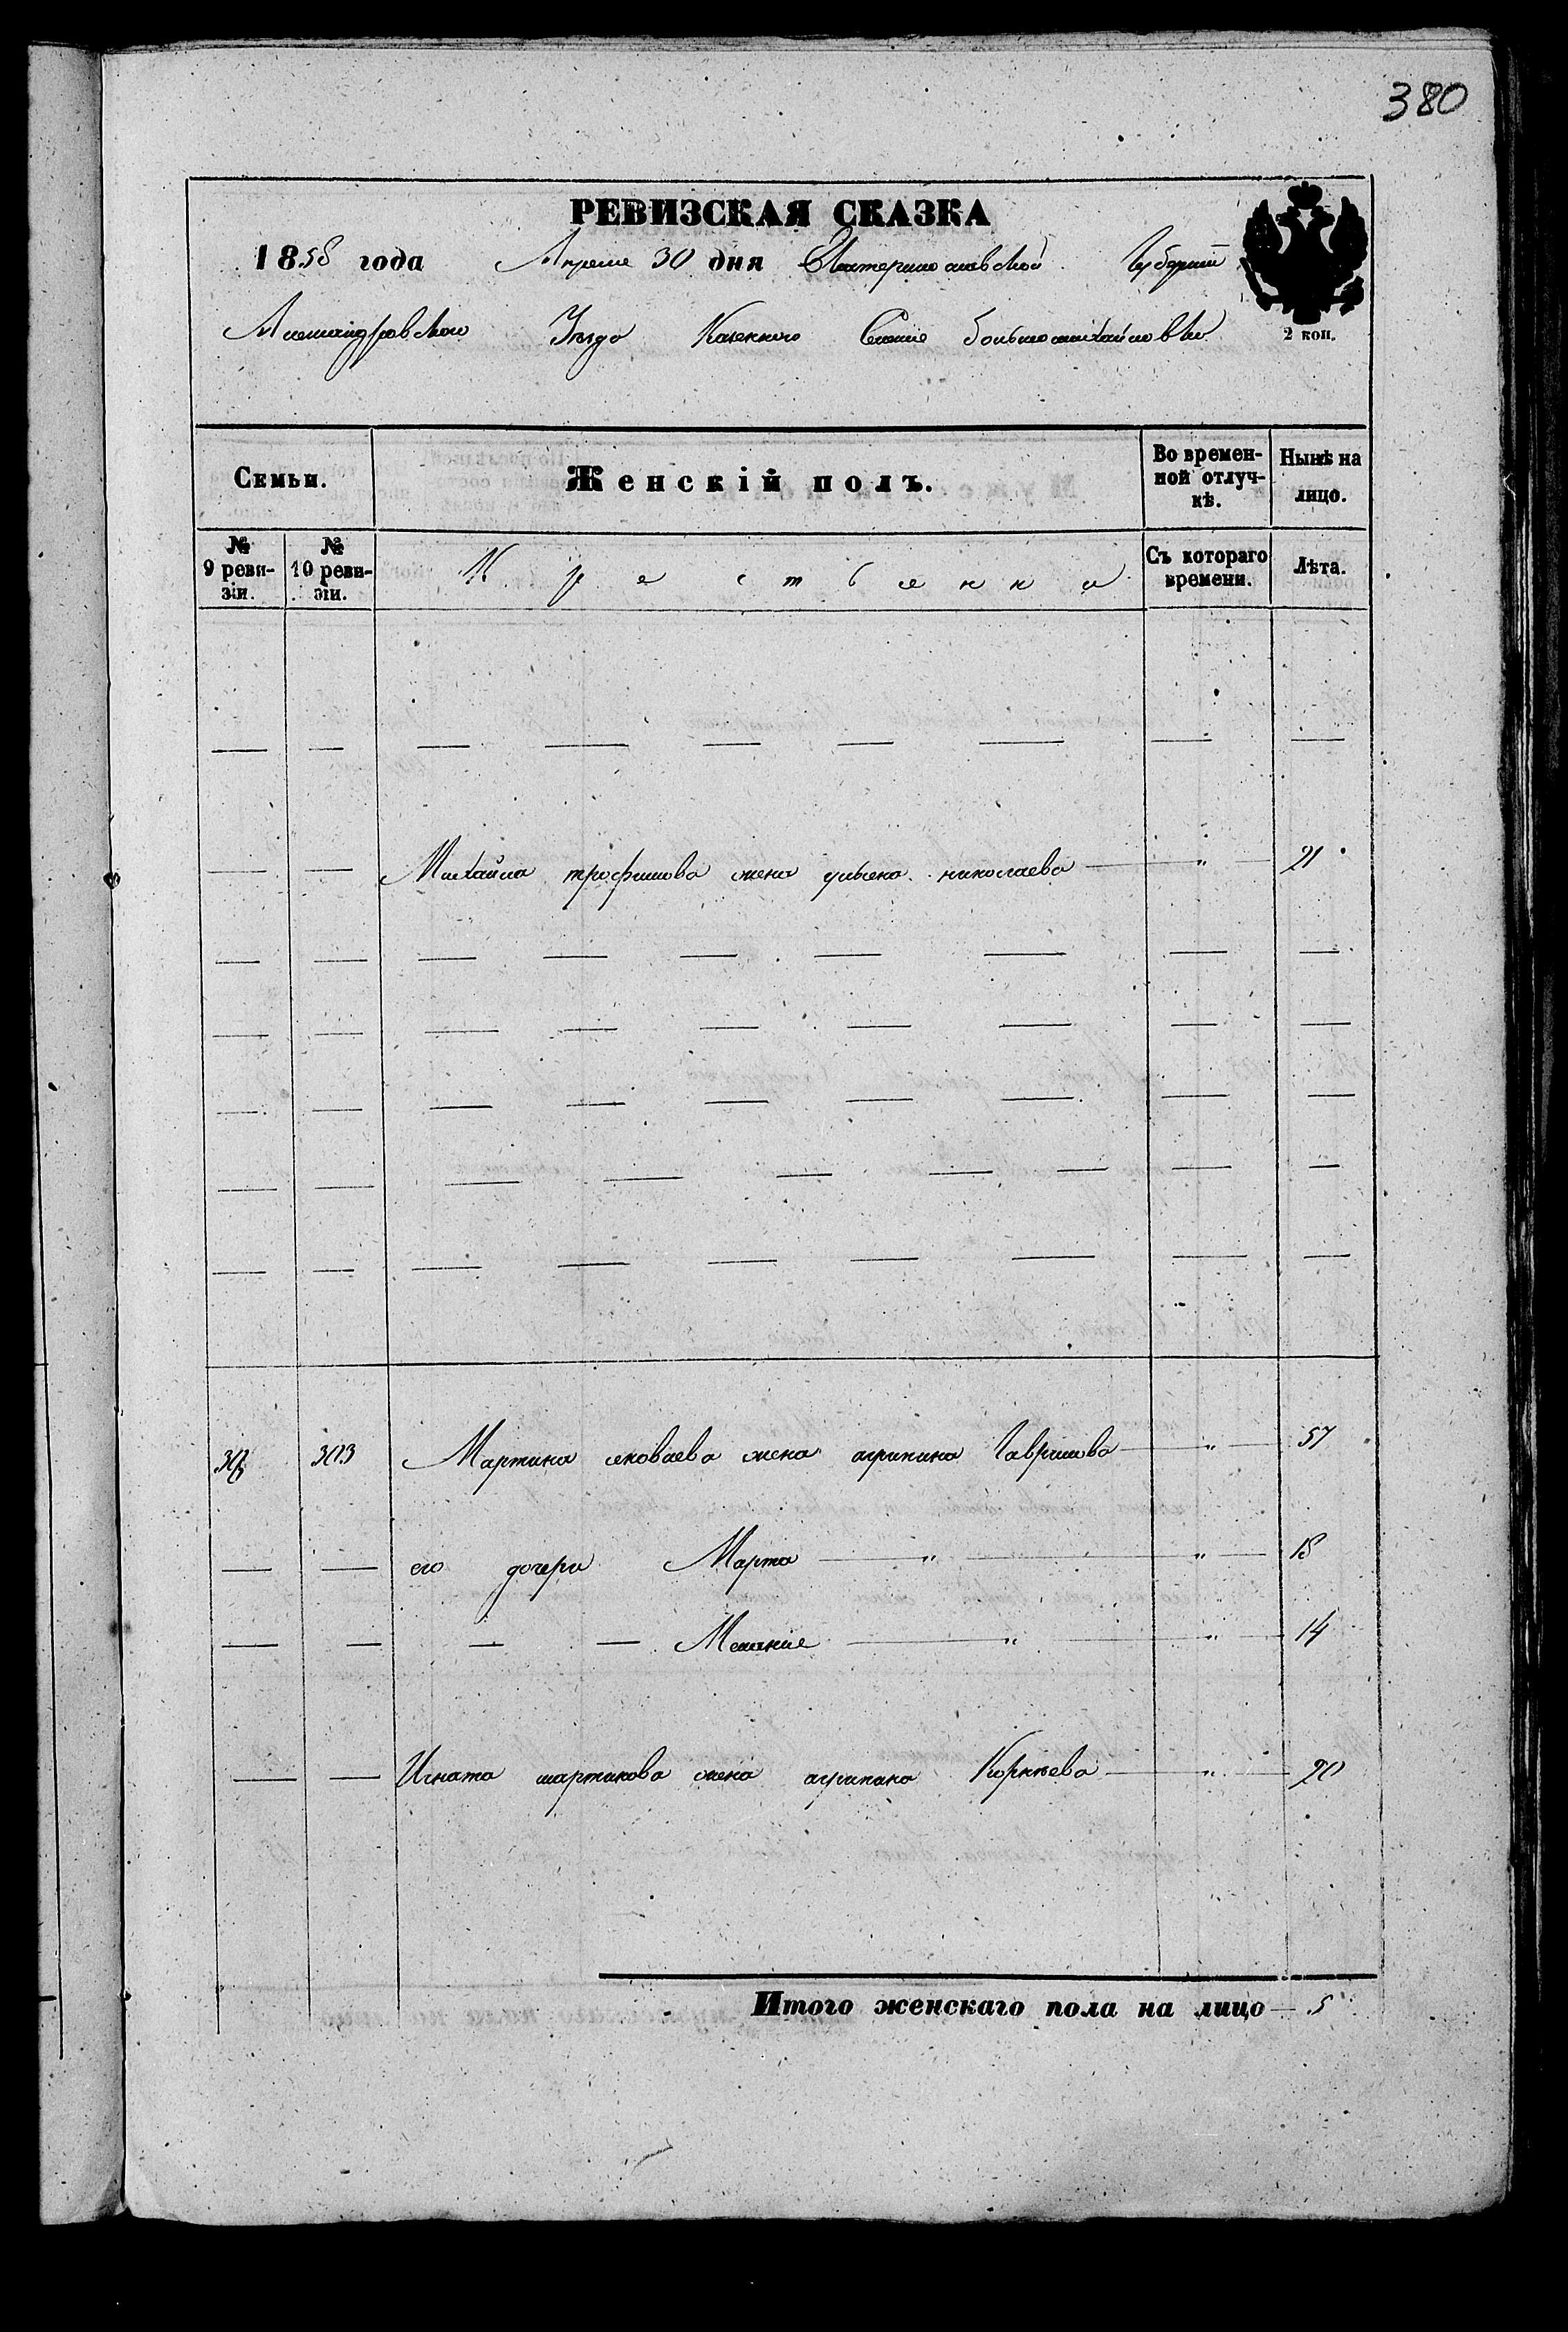 380
РЕВИЗСКАЯ СКАЗКА
1858 года Апреля 30 дня Екатеринославской Губернии
Александровского Уезда Казенного Селения большомихайловки
2 коп.
Семьи. Женскій полъ. Во времен-ной отлуч-кѣ. Нынѣ на лицо.
№ 9 реви-зіи. № 10 реви-зіи. Крестьянки Съ котораго времени. Лѣта.
— — — — — — — — —
— — Михайла трофимова жена ульяна николаева — " — 21
— — — — — — — — —
— — — — — — — — —
— — — — — — — — —
— — — — — — — — —
— — — — — — — — —
303 Мартина яковлева жена агрипина Гаврилова — " — 57
— — его дочери Марта — " — " — 18
— — — — Мелания — " — " — 14
— — Игната мартинова жена агрипина Корнѣева — " — 20
Итого женскаго пола на лицо — 5